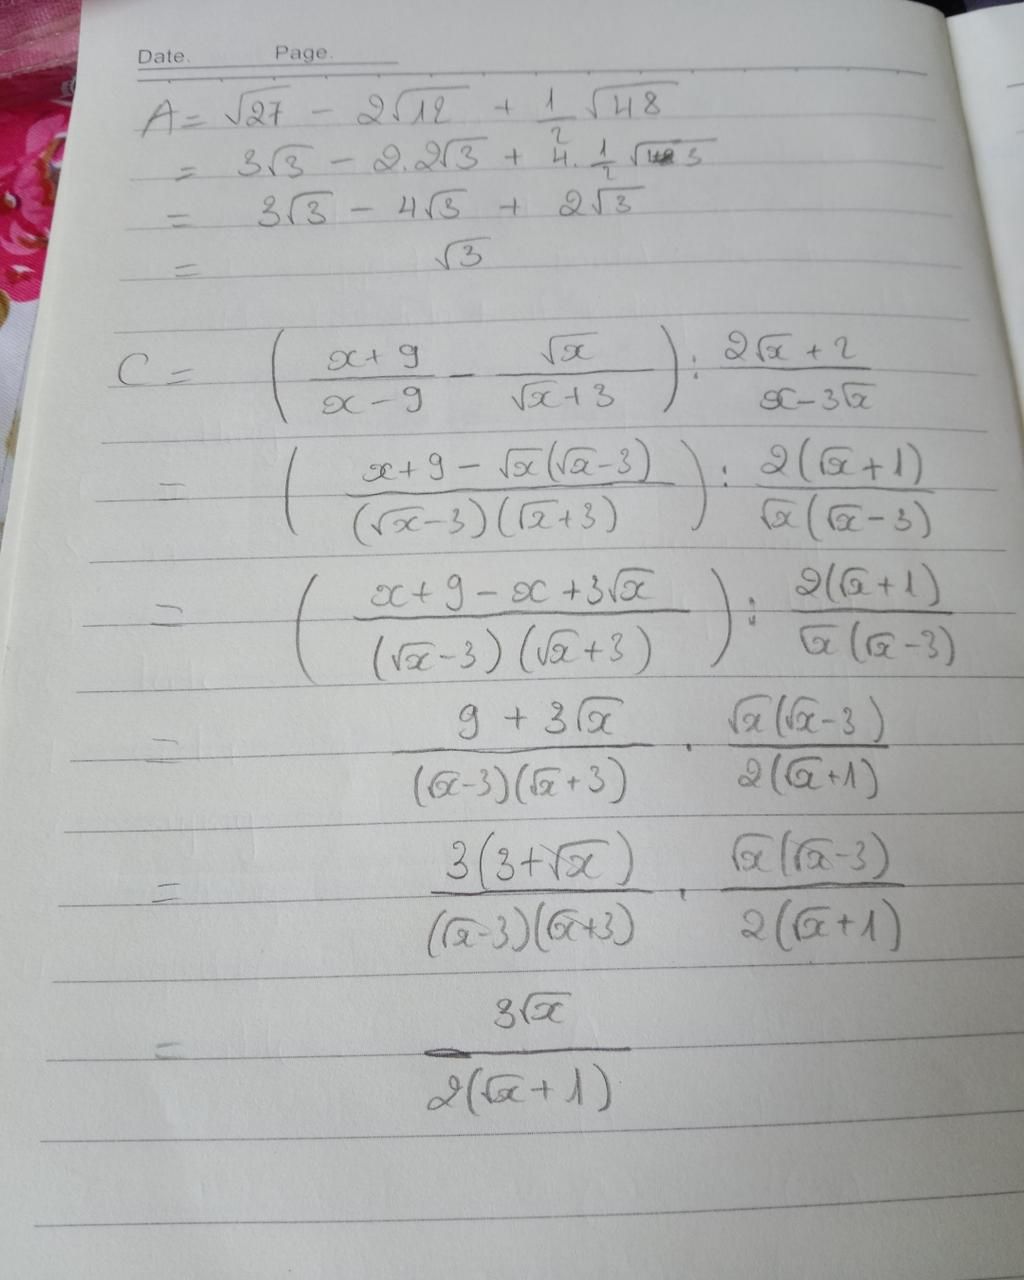 Date. Page.
A = √27 - 2√12 + 1/2 √48
= 3√3 - 2.2√3 + 4. 1/2 √3
= 3√3 - 4√3 + 2√3
= √3
C = ( (x+9)/(x-9) - √x/(√x+3) ) : (2√x+2)/(x-3√x)
= ( (x+9-√x(√x-3))/((√x-3)(√x+3)) ) : 2(√x+1)/(√x(√x-3))
= ( (x+9-x+3√x)/((√x-3)(√x+3)) ) : 2(√x+1)/(√x(√x-3))
= (9+3√x)/((√x-3)(√x+3)) . √x(√x-3)/(2(√x+1))
= 3(3+√x)/((√x-3)(√x+3)) . √x(√x-3)/(2(√x+1))
= 3√x/(2(√x+1))